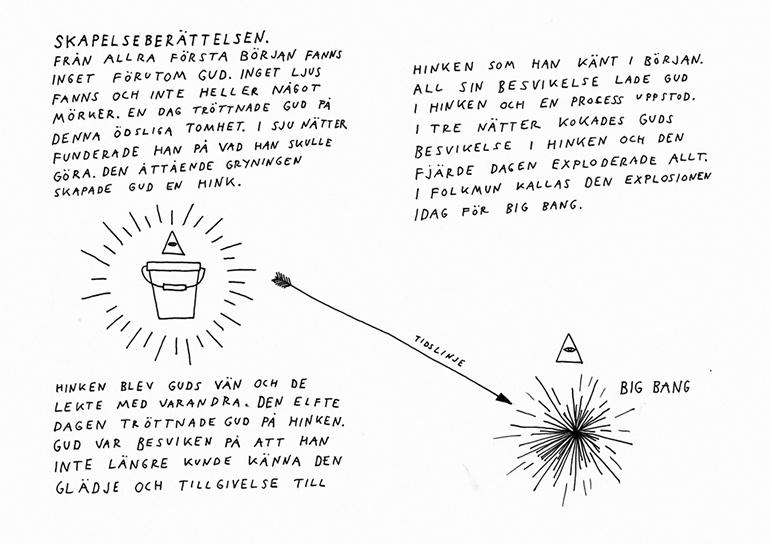 SKAPELSEBERÄTTELSEN.
FRÅN ALLRA FÖRSTA BÖRJAN FANNS
INGET FÖRUTOM GUD. INGET LJUS
FANNS OCH INTE HELLER NÅGOT
MÖRKER. EN DAG TRÖTTNADE GUD PÅ
DENNA ÖDSLIGA TOMHET. I SJU NÄTTER
FUNDERADE HAN PÅ VAD HAN SKULLE
GÖRA. DEN ÅTTÅENDE GRYNINGEN
SKAPADE GUD EN HINK.
HINKEN BLEV GUDS VÄN OCH DE
LEKTE MED VARANDRA. DEN ELFTE
DAGEN TRÖTTNADE GUD PÅ HINKEN.
GUD VAR BESVIKEN PÅ ATT HAN
INTE LÄNGRE KUNDE KÄNNA DEN
GLÄDJE OCH TILLGIVELSE TILL
HINKEN SOM HAN KÄNT I BÖRJAN.
ALL SIN BESVIKELSE LADE GUD
I HINKEN OCH EN PROCESS UPPSTOD.
I TRE NÄTTER KOKADES GUDS
BESVIKELSE I HINKEN OCH DEN
FJÄRDE DAGEN EXPLODERADE ALLT.
I FOLKMUN KALLAS DEN EXPLOSIONEN
IDAG FÖR BIG BANG.
TIDSLINJE
BIG BANG